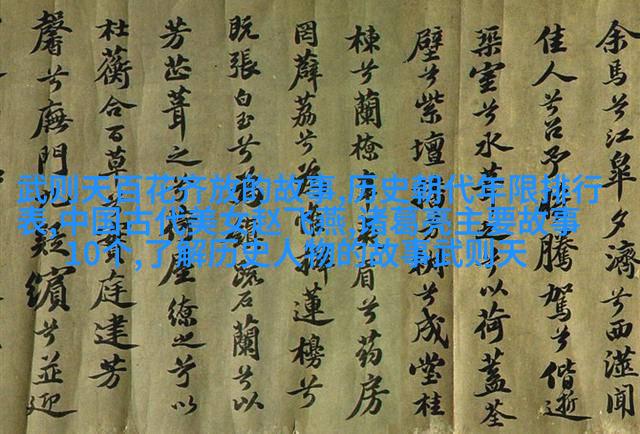 余馬兮江皋夕濟兮西澨聞
佳人兮召予騰駕兮偕逝
築室兮水之以荷蓋荃
壁兮紫壇兮成堂桂
棟兮蘭橑眉兮藥房
罔薜荔兮蓮櫋兮
既張白玉兮石蘭兮以
芳芷葺之繚之兮以
杜蘅合百草庭建芳
馨兮廡門疑繽兮並迎
武则天百花齐放的故事,历史朝代年限排行
表,中国古代美女赵飞燕,诸葛亮主要故事
10个,了解历史人物的故事武则天